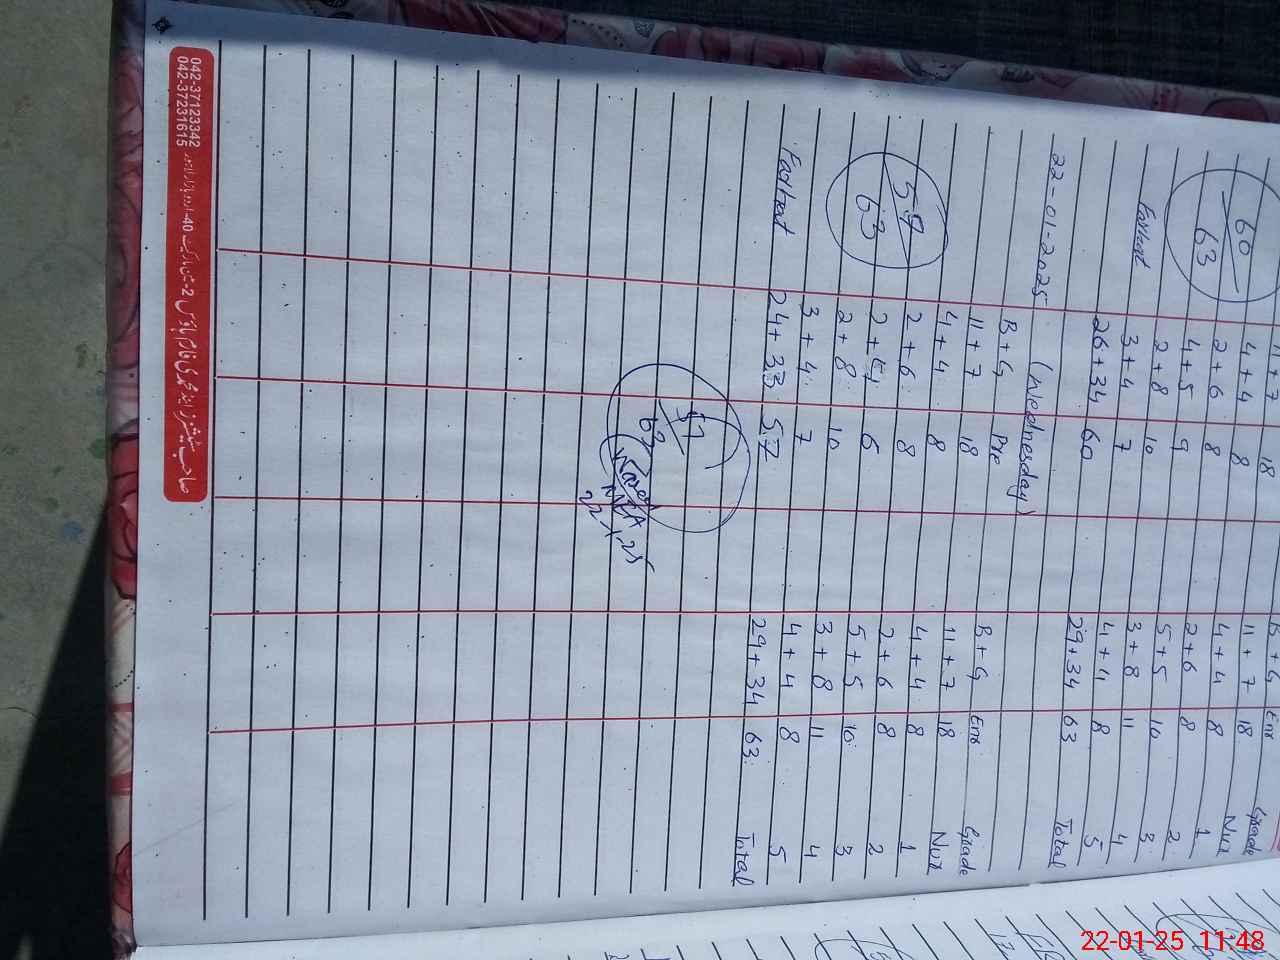 B + G Enr Grade
11 + 7 18 11 + 7 18 Nur
4 + 4 8 4 + 4 8 1
2 + 6 8 2 + 6 8 2
60
63
4 + 5 9 5 + 5 10 3
2 + 8 10 3 + 8 11 4
3 + 4 7 4 + 4 8 5
26 + 34 60 29 + 34 63 Total
22-01-2025 (Wednesday)
B + G Pre B + G Enr: Grade
11 + 7 18 11 + 7 18 Nur
4 + 4 8 4 + 4 8 1
2 + 6 8 2 + 6 8 2
57
63
2 + 4 6 5 + 5 10 3
2 + 8 10 3 + 8 11 4
3 + 4 7 4 + 4 8 5
24 + 33 57 29 + 34 63 Total
57
63
MEA
22-1-25
042-37123342
042-37231615
22-01-25 11:48